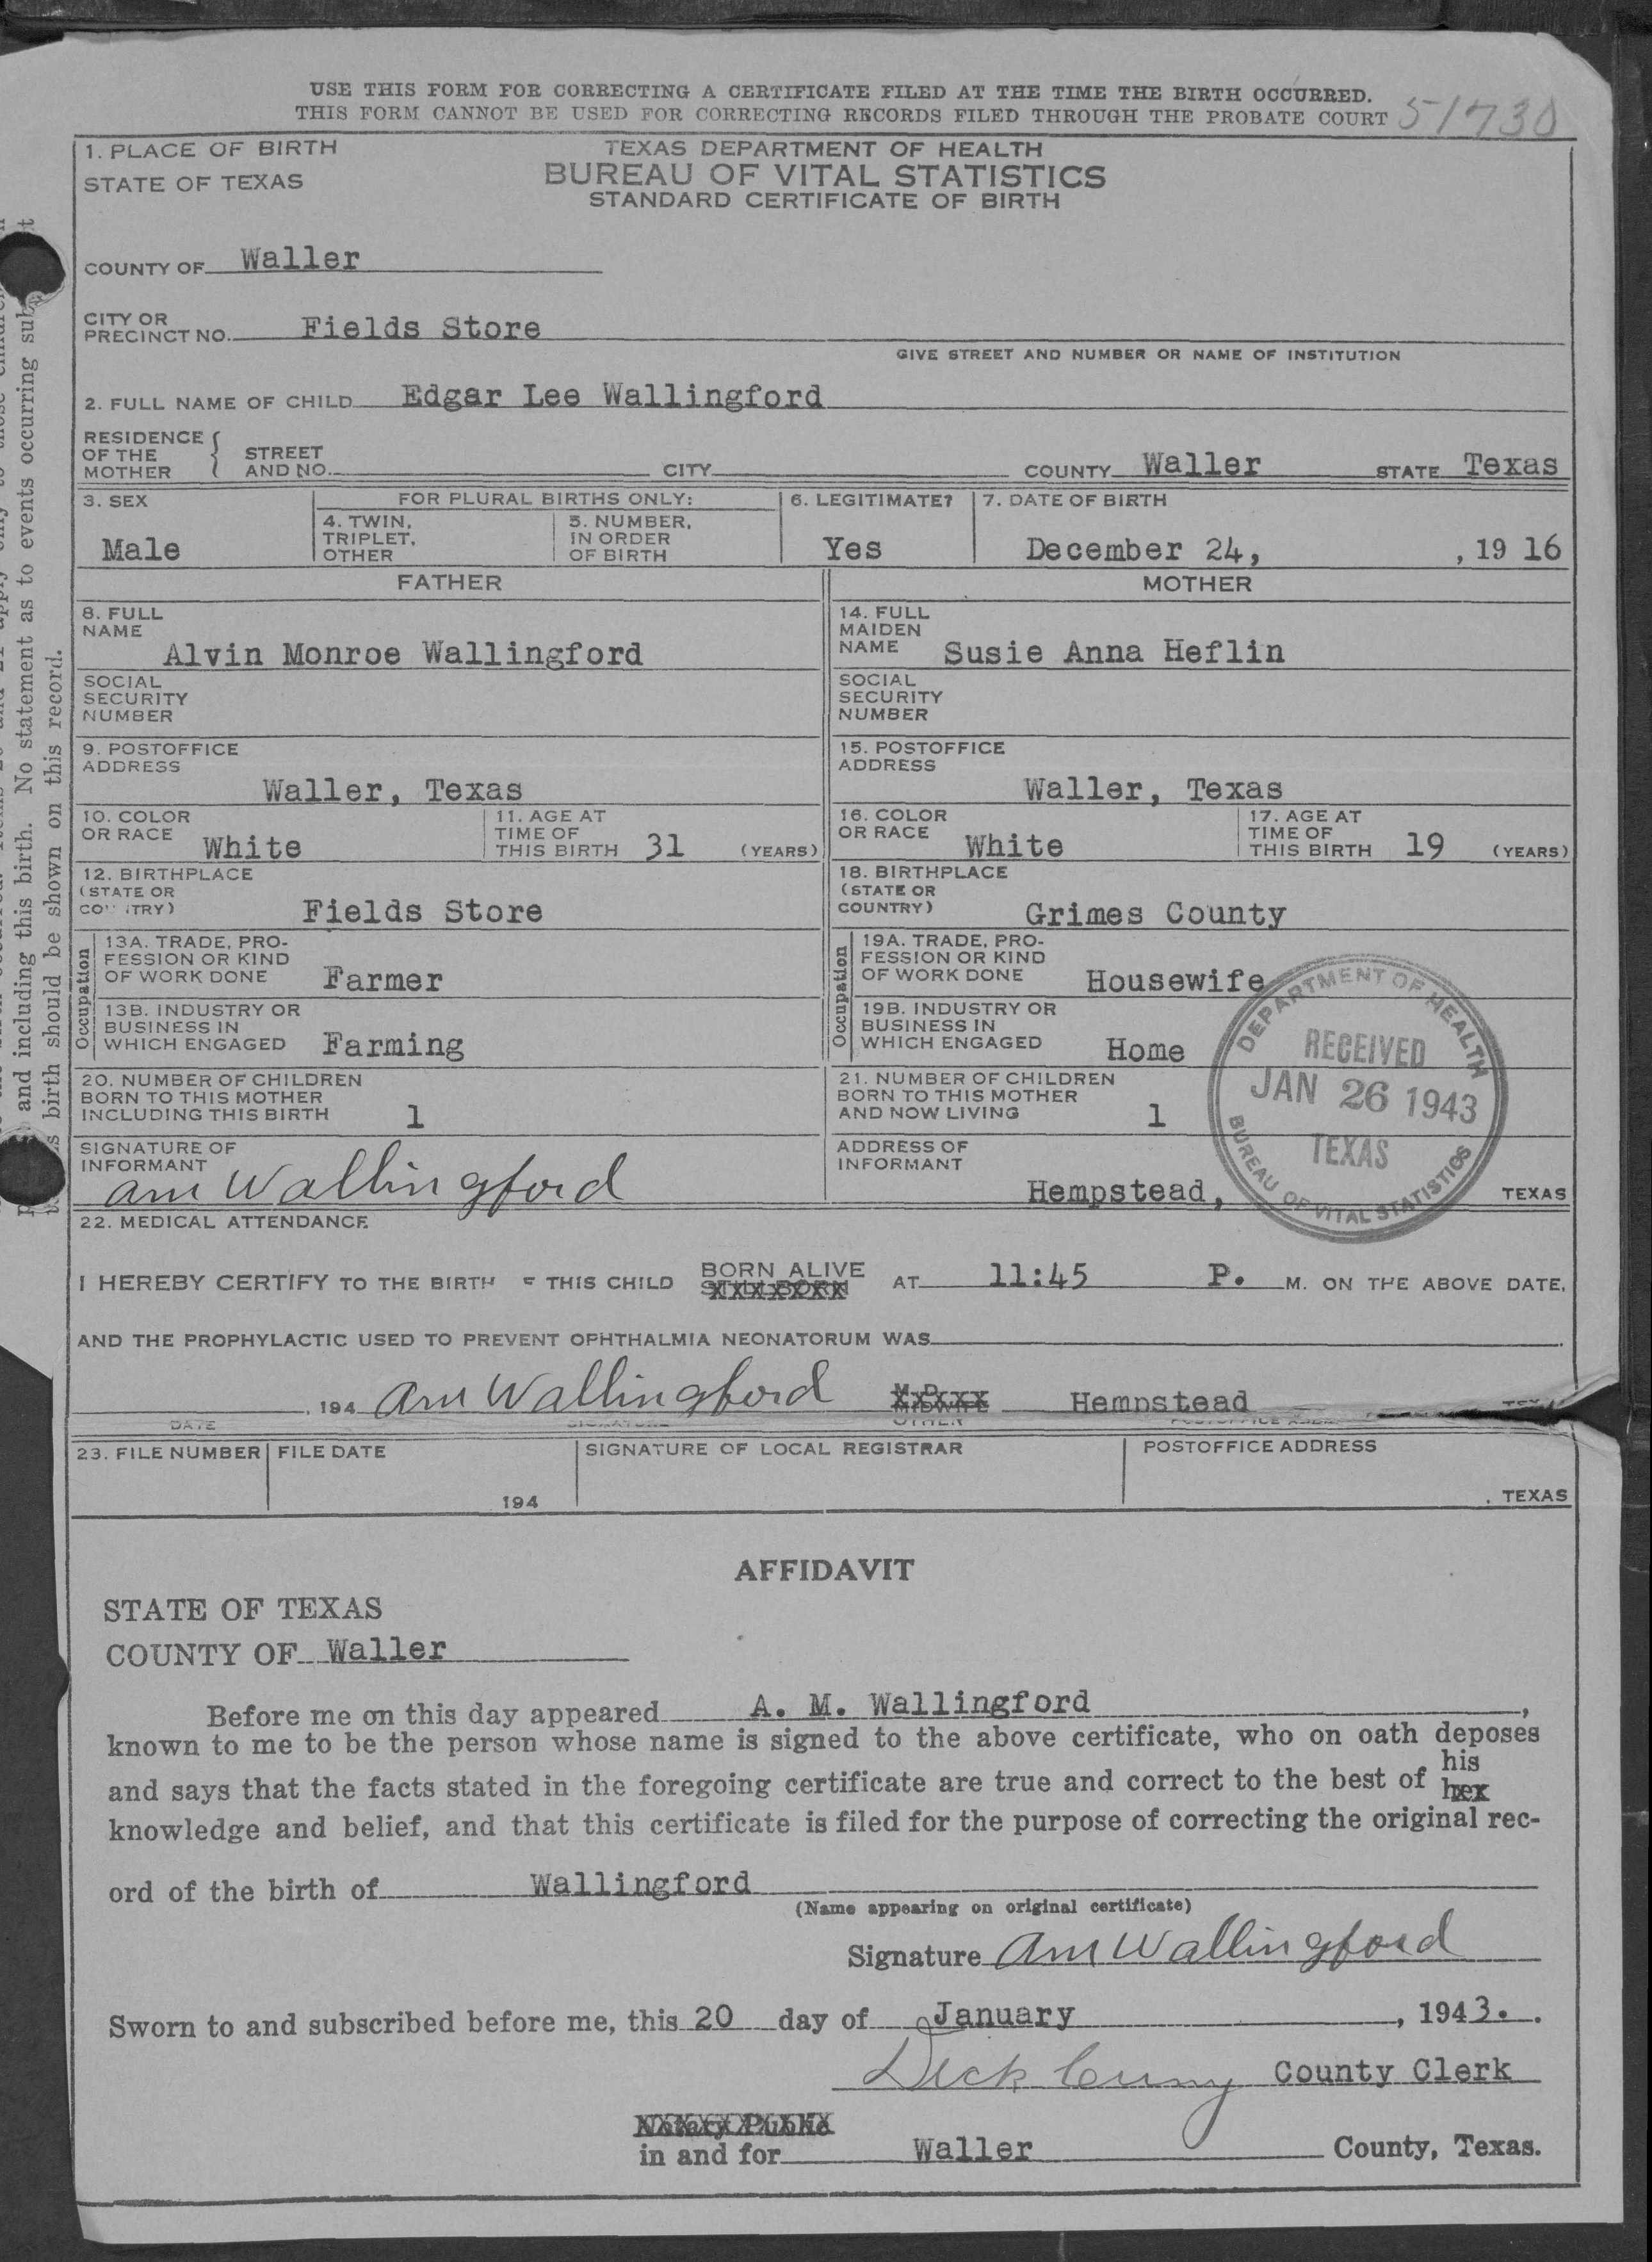 USE THIS FORM FOR CORRECTING A CERTIFICATE FILED AT THE TIME THE BIRTH OCCURRED.
THIS FORM CANNOT BE USED FOR CORRECTING RECORDS FILED THROUGH THE PROBATE COURT 51730
1. PLACE OF BIRTH
STATE OF TEXAS
TEXAS DEPARTMENT OF HEALTH
BUREAU OF VITAL STATISTICS
STANDARD CERTIFICATE OF BIRTH
COUNTY OF Waller
CITY OR
PRECINCT NO. Fields Store
GIVE STREET AND NUMBER OR NAME OF INSTITUTION
2. FULL NAME OF CHILD Edgar Lee Wallingford
RESIDENCE
OF THE
MOTHER
STREET
AND NO. CITY COUNTY Waller STATE Texas
3. SEX
Male
FOR PLURAL BIRTHS ONLY:
4. TWIN,
TRIPLET,
OTHER
5. NUMBER,
IN ORDER
OF BIRTH
6. LEGITIMATE?
Yes
7. DATE OF BIRTH
December 24, , 19 16
FATHER
MOTHER
8. FULL
NAME
Alvin Monroe Wallingford
14. FULL
MAIDEN
NAME Susie Anna Heflin
SOCIAL
SECURITY
NUMBER
SOCIAL
SECURITY
NUMBER
9. POSTOFFICE
ADDRESS
Waller, Texas
15. POSTOFFICE
ADDRESS
Waller, Texas
10. COLOR
OR RACE White
11. AGE AT
TIME OF
THIS BIRTH 31 (YEARS)
16. COLOR
OR RACE White
17. AGE AT
TIME OF
THIS BIRTH 19 (YEARS)
12. BIRTHPLACE
(STATE OR
Fields Store
18. BIRTHPLACE
(STATE OR
COUNTRY) Grimes County
Occupation
13A. TRADE, PRO-
FESSION OR KIND
OF WORK DONE Farmer
13B. INDUSTRY OR
BUSINESS IN
WHICH ENGAGED Farming
Occupation
19A. TRADE, PRO-
FESSION OR KIND
OF WORK DONE Housewife
19B. INDUSTRY OR
BUSINESS IN
WHICH ENGAGED Home
DEPARTMENT OF HEALTH
RECEIVED
JAN 26 1943
TEXAS
BUREAU OF VITAL STATISTICS
20. NUMBER OF CHILDREN
BORN TO THIS MOTHER
INCLUDING THIS BIRTH 1
21. NUMBER OF CHILDREN
BORN TO THIS MOTHER
AND NOW LIVING 1
SIGNATURE OF
INFORMANT
am Wallingford
ADDRESS OF
INFORMANT
Hempstead, TEXAS
22. MEDICAL ATTENDANCE
I HEREBY CERTIFY TO THE BIRTH THIS CHILD BORN ALIVE AT 11:45 P. M. ON THE ABOVE DATE,
STILLBORN
AND THE PROPHYLACTIC USED TO PREVENT OPHTHALMIA NEONATORUM WAS
, 194 am Wallingford M.D. Hempstead
MIDWIFE
DATE SIGNATURE OTHER
23. FILE NUMBER FILE DATE SIGNATURE OF LOCAL REGISTRAR POSTOFFICE ADDRESS
194 , TEXAS
AFFIDAVIT
STATE OF TEXAS
COUNTY OF Waller
Before me on this day appeared A. M. Wallingford,
known to me to be the person whose name is signed to the above certificate, who on oath deposes
and says that the facts stated in the foregoing certificate are true and correct to the best of his
her
knowledge and belief, and that this certificate is filed for the purpose of correcting the original rec-
ord of the birth of Wallingford
(Name appearing on original certificate)
Signature am Wallingford
Sworn to and subscribed before me, this 20 day of January, 1943..
Dick County Clerk
Notary Public
in and for Waller County, Texas.
and including this birth. No statement as to events occurring
birth should be shown on this record.